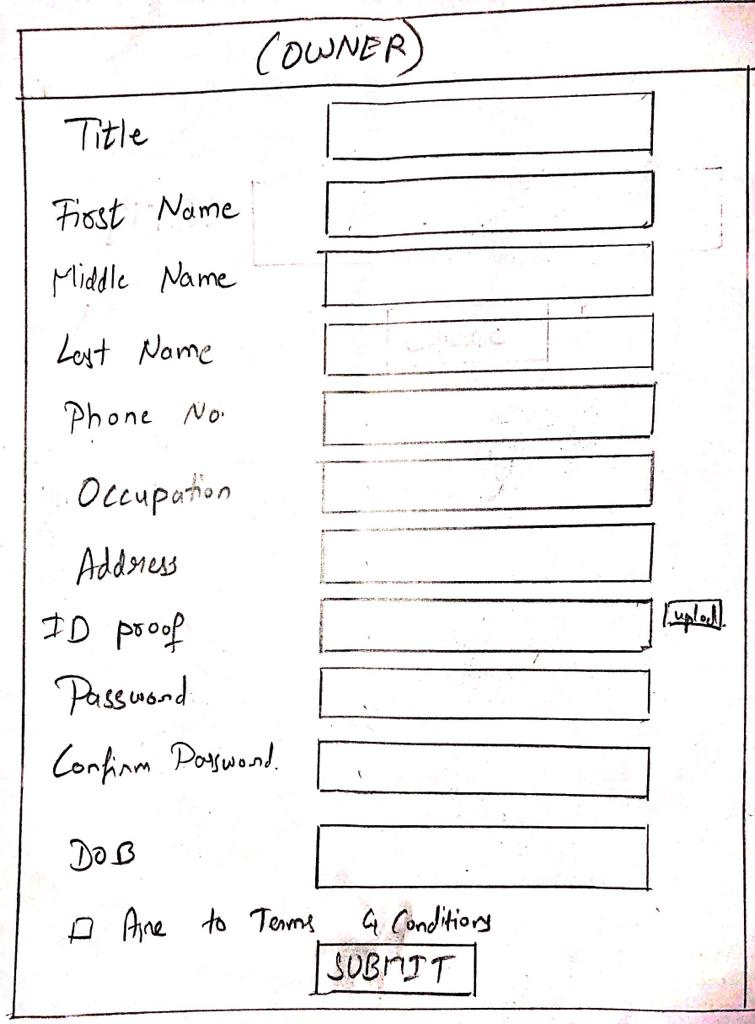 (OWNER)
Title
First Name
Middle Name
Last Name
Phone No.
Occupation
Address
ID proof
upload
Password
Confirm Password.
DOB
Agre to Terms & Conditions
SUBMIT